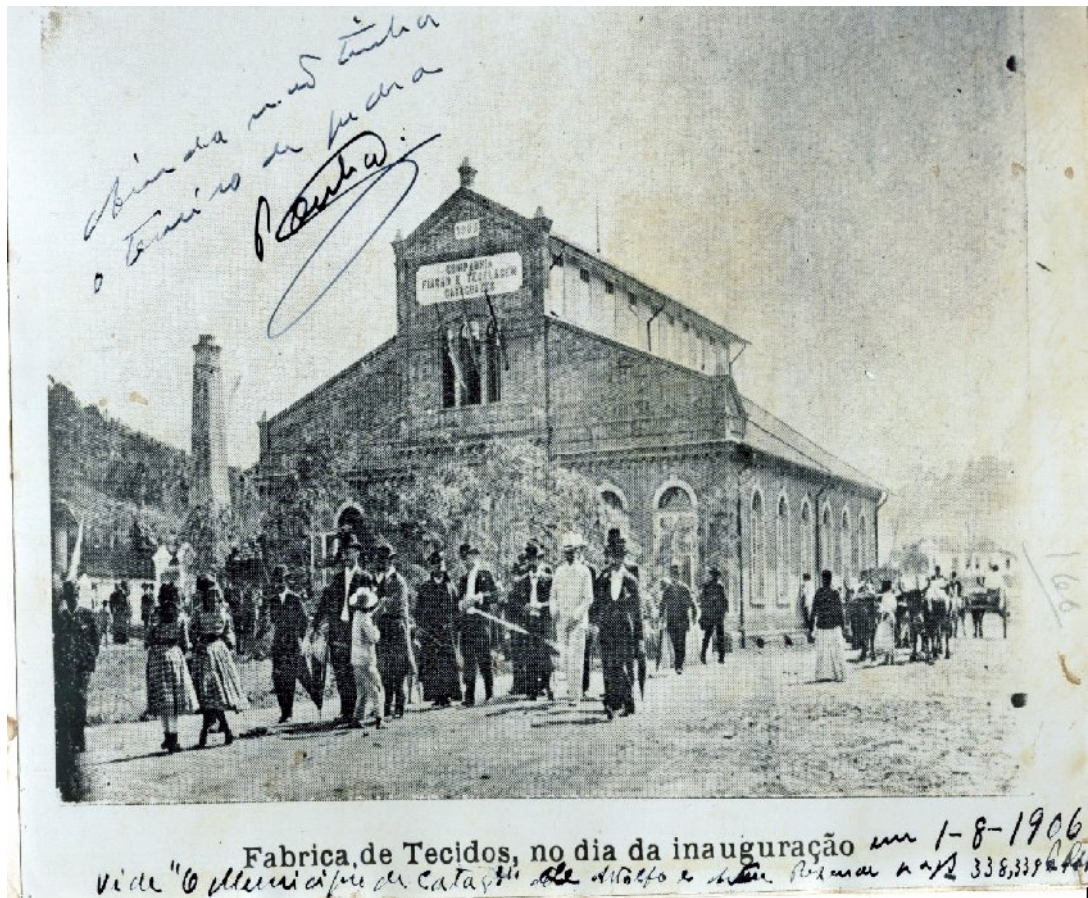 Ainda não tinha
o terreiro de pedra
COMPANHIA
FIAÇÃO E TECELAGEM
CATAGUAZES
166
Fabrica de Tecidos, no dia da inauguração em 1-8-1906
Vide "O Municipio de Catag" de Arthur Rezende pags 338,339